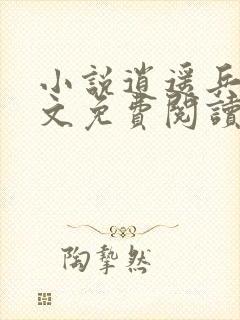 小説逍遥兵
文免費閱讀
陶摯然